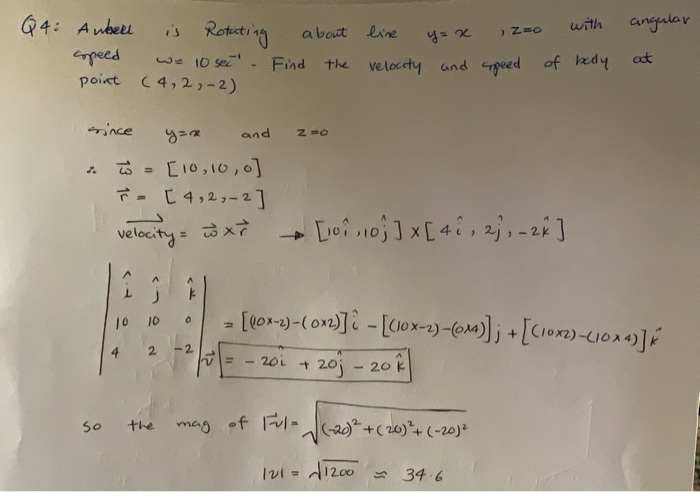 Q4: A wheel is Rotating about line y=x , z=0 with angular
speed w= 10 sec⁻¹. Find the velocity and speed of body at
point (4,2,-2)
since y=x and z=0
∴ ω⃗ = [10,10,0]
r⃗ = [4,2,-2]
velocity = ω⃗ × r⃗ → [10î ,10ĵ] × [4î , 2ĵ , -2k̂]
| î ĵ k̂ |
10 10 0 = [(10×-2)-(0×2)]î - [(10×-2)-(0×4)]j + [(10×2)-(10×4)]k̂
4 2 -2 v⃗ = -20î + 20ĵ - 20k̂
so the mag of |v⃗| = √(-20)² + (20)² + (-20)²
|v| = √1200 ≈ 34.6